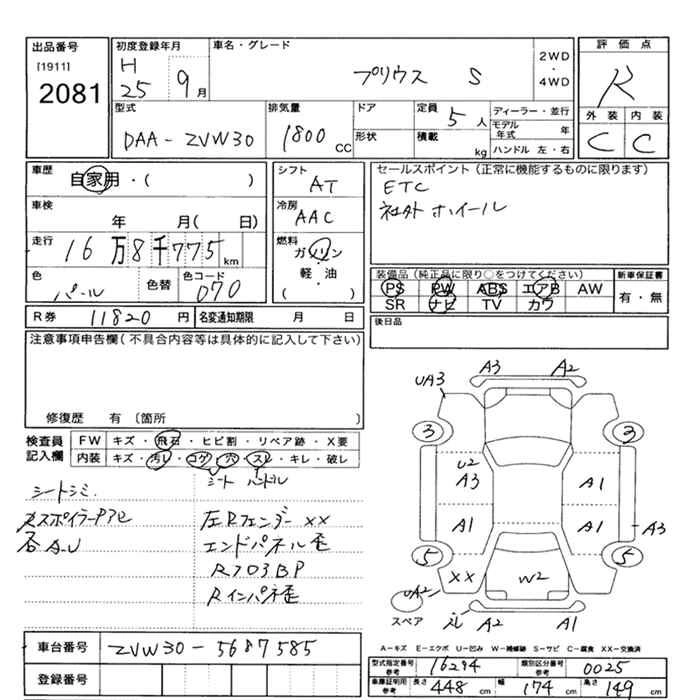 出品番号
[1911]
2081
初度登録年月
H
25 9月
車名・グレード
プリウス S
2WD
・
4WD
評価点
R
外装 内装
C C
型式
DAA-ZVW30
排気量
1800 CC
ドア
形状
定員
5人
積載
kg
ディーラー・並行
モデル年式 年
ハンドル 左・右
車歴
自家用・( )
シフト
AT
車検
年 月( 日)
冷房
AAC
走行
16万8千775 km
燃料
ガソリン
・
軽・油
( )
色
パール
色替
色コード
070
R券 11820 円
名変通知期限 月 日
セールスポイント(正常に機能するものに限ります)
ETC
社外ホイール
装備品(純正品に限り○をつけてください)
PS PW ABS エアB AW
SR ナビ TV カワ
新車保証書
有・無
後日品
注意事項申告欄(不具合内容等は具体的に記入して下さい)
修復歴 有 〔箇所 〕
検査員記入欄
FW キズ・飛石・ヒビ割・リペア跡・X要
内装 キズ・汚レ・コゲ・穴・スレ・キレ・破レ
シート ハンドル
シートシミ
左Rフェンダー XX
エンドパネル歪
RフロアBP
Rインパネ歪
A3 A2
UA3
3 3
U2
A3 A1
A1 A1
A3
5 5
XX W2
UA2
スペア
A2 A1
A-キズ E-エクボ U-凹み W-補修跡 S-サビ C-腐食 XX-交換済
車台番号 ZVW30-5687585
登録番号
型式指定番号
参考
16294
類別区分番号
参考
0025
車庫証明用
参考
長さ 448 cm 幅 174 cm 高さ 149 cm